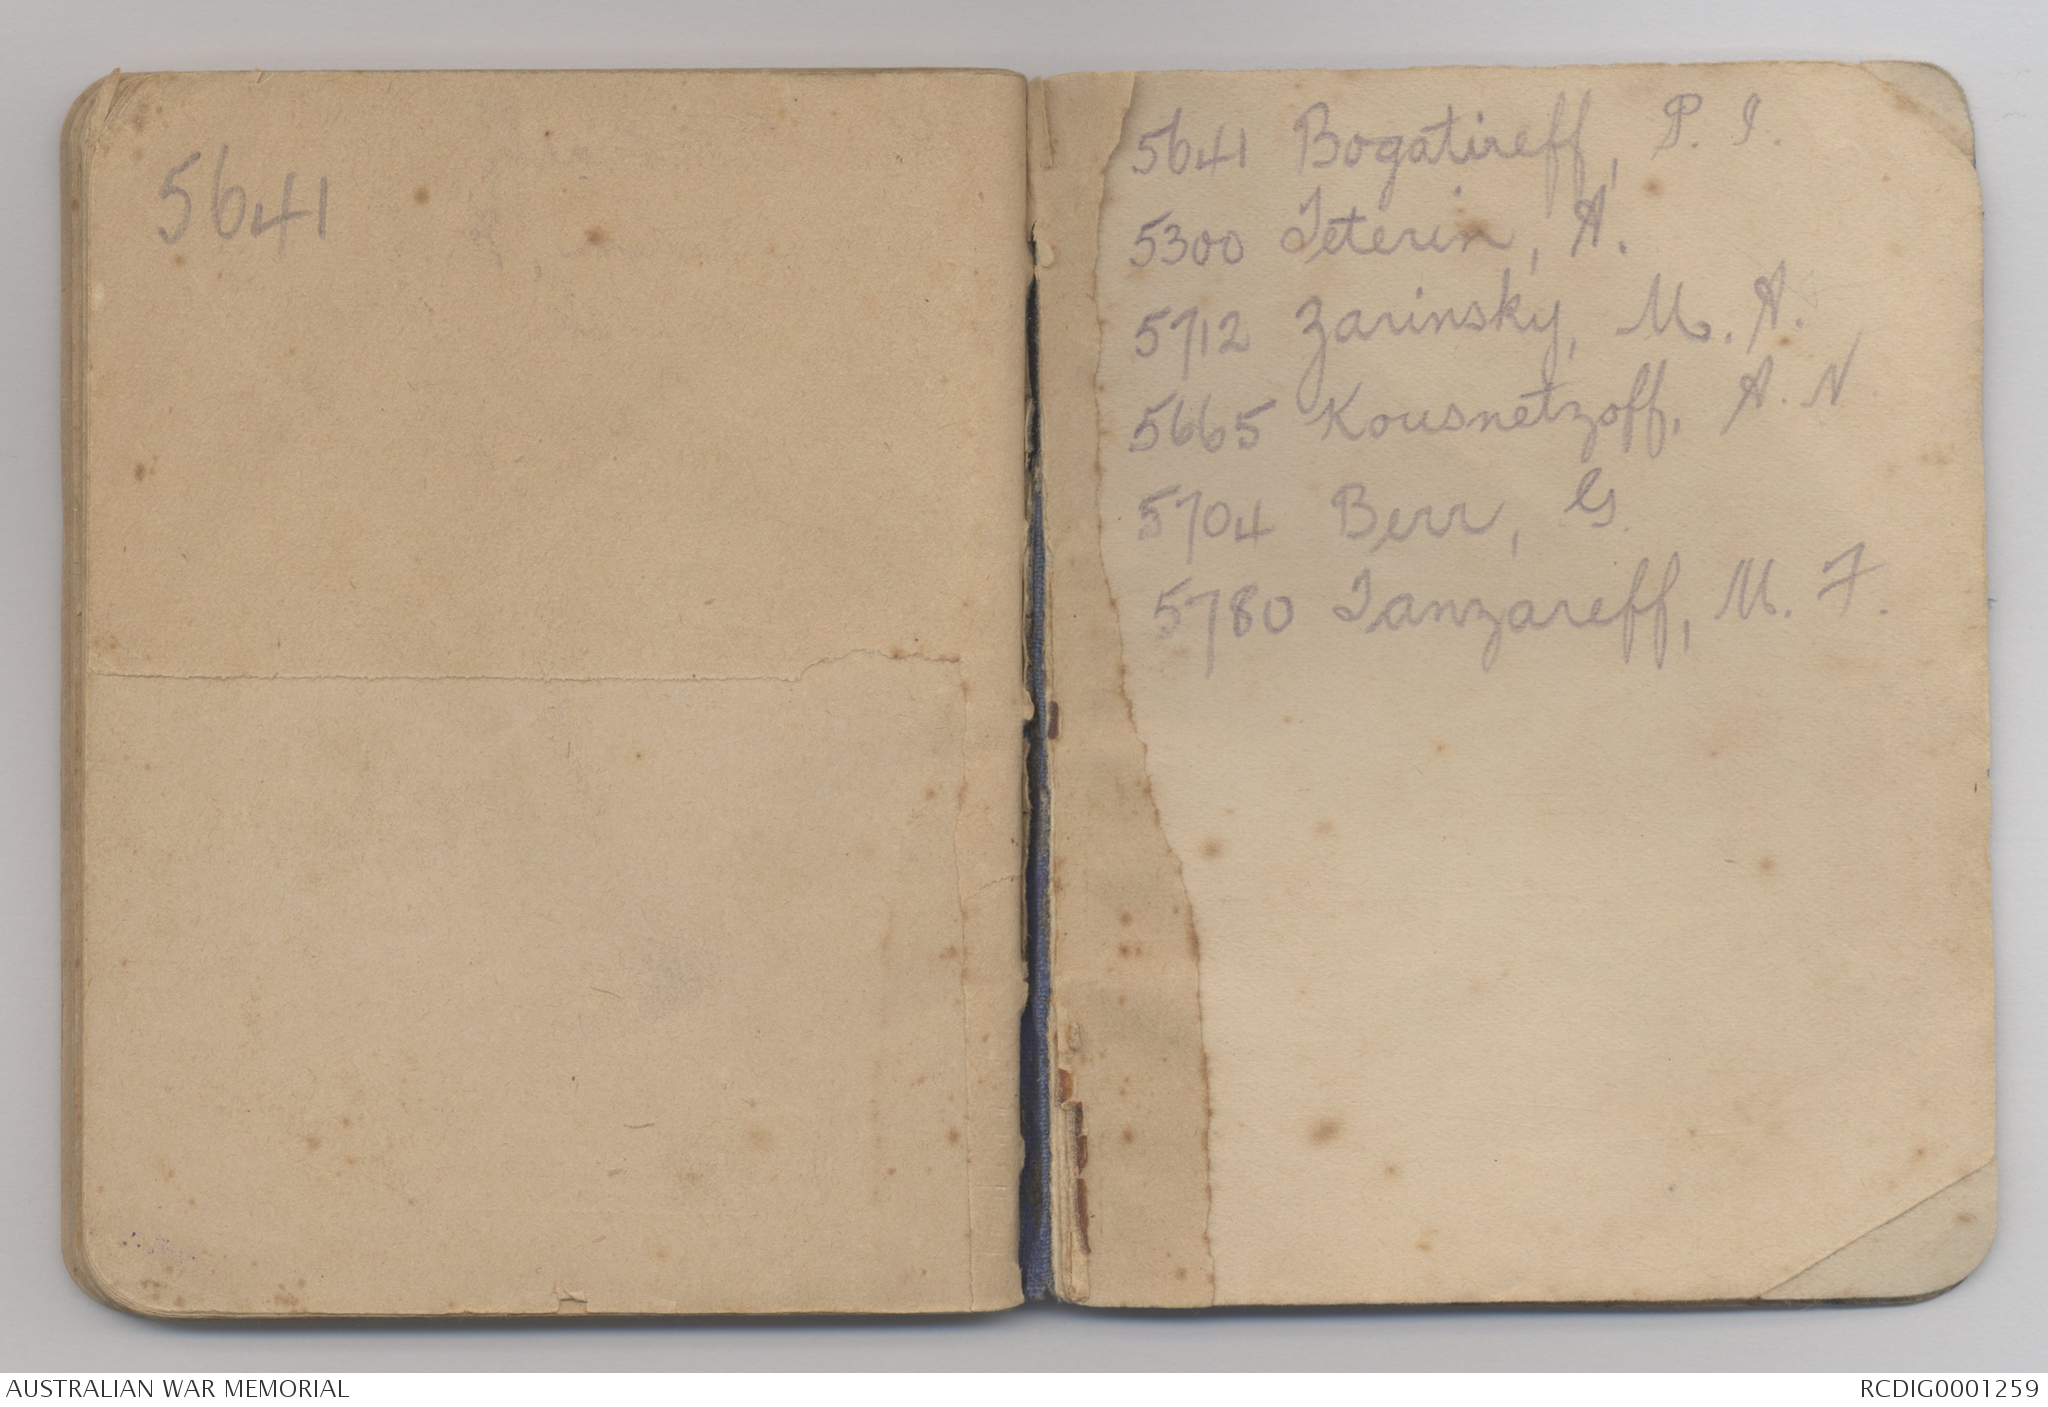 5641
5641 Bogatireff, P. I.
5300 Teterin, A.
5712 Zarinsky, M. A.
5665 Kousnetzoff, A. N.
5704 Berr, G.
5780 Tanzareff, M. F.
AUSTRALIAN WAR MEMORIAL
RCDIG0001259